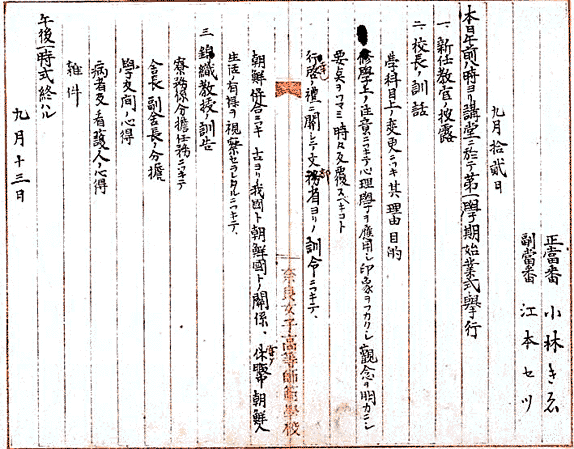 正當番 小林きゑ
副當番 江本セツ
九月拾貳日
本日午前八時ヨリ講堂ニ於テ第一學期始業式擧行
一、新任教官ノ披露
二、校長ノ訓話
學科目上ノ変更ニツキ其理由目的
修學上ノ注意ニツキテ心理學ヲ應用シ印象ヲフカクシ觀念ヲ明カニシ
要点ヲツマミ時々反覆スベキコト
行啓ノ禮ニ関シテノ文部省ヨリノ訓令ニツキテ、
朝鮮併合ニツキ古ヨリ我國ト朝鮮國トノ關係、保暇中朝鮮人
生活ノ有様ヲ視察セラレタルニツキテ、
三 錦織教授ノ訓告
寮務係分擔任務ニツキテ
會長副會長ノ分擔
學友間ノ心得
病者及看護人ノ心得
雜件
午後一時式終ハル
九月十三日
奈良女子高等師範學校